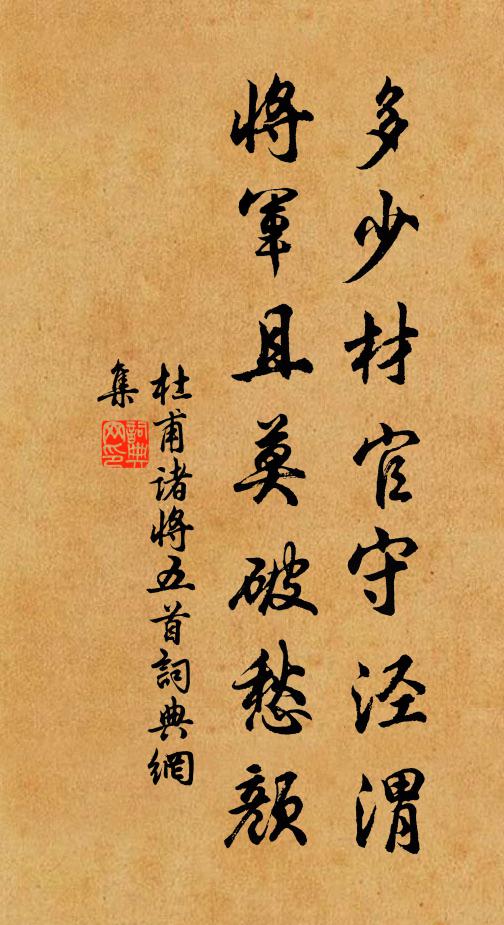 多少材官守泾渭
将军且莫破愁颜
杜甫诸将五首詞典網
集
詞典
网印